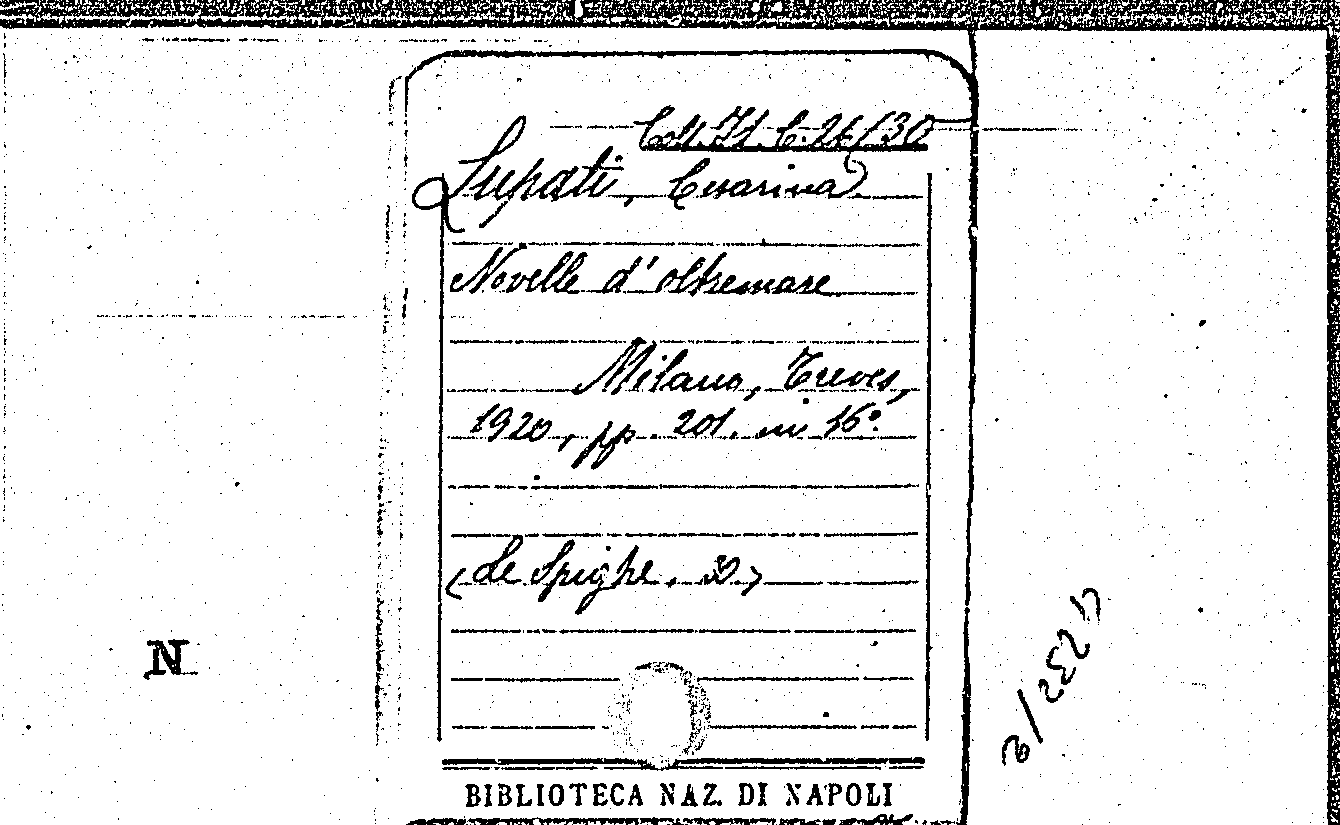 Coll. It. C. 26/30
Lupati, Cesarina
Novelle d'oltremare
Milano, Treves,
1920, pp. 201. in 16°.
(Le Spighe. 30)
N
BIBLIOTECA NAZ. DI NAPOLI